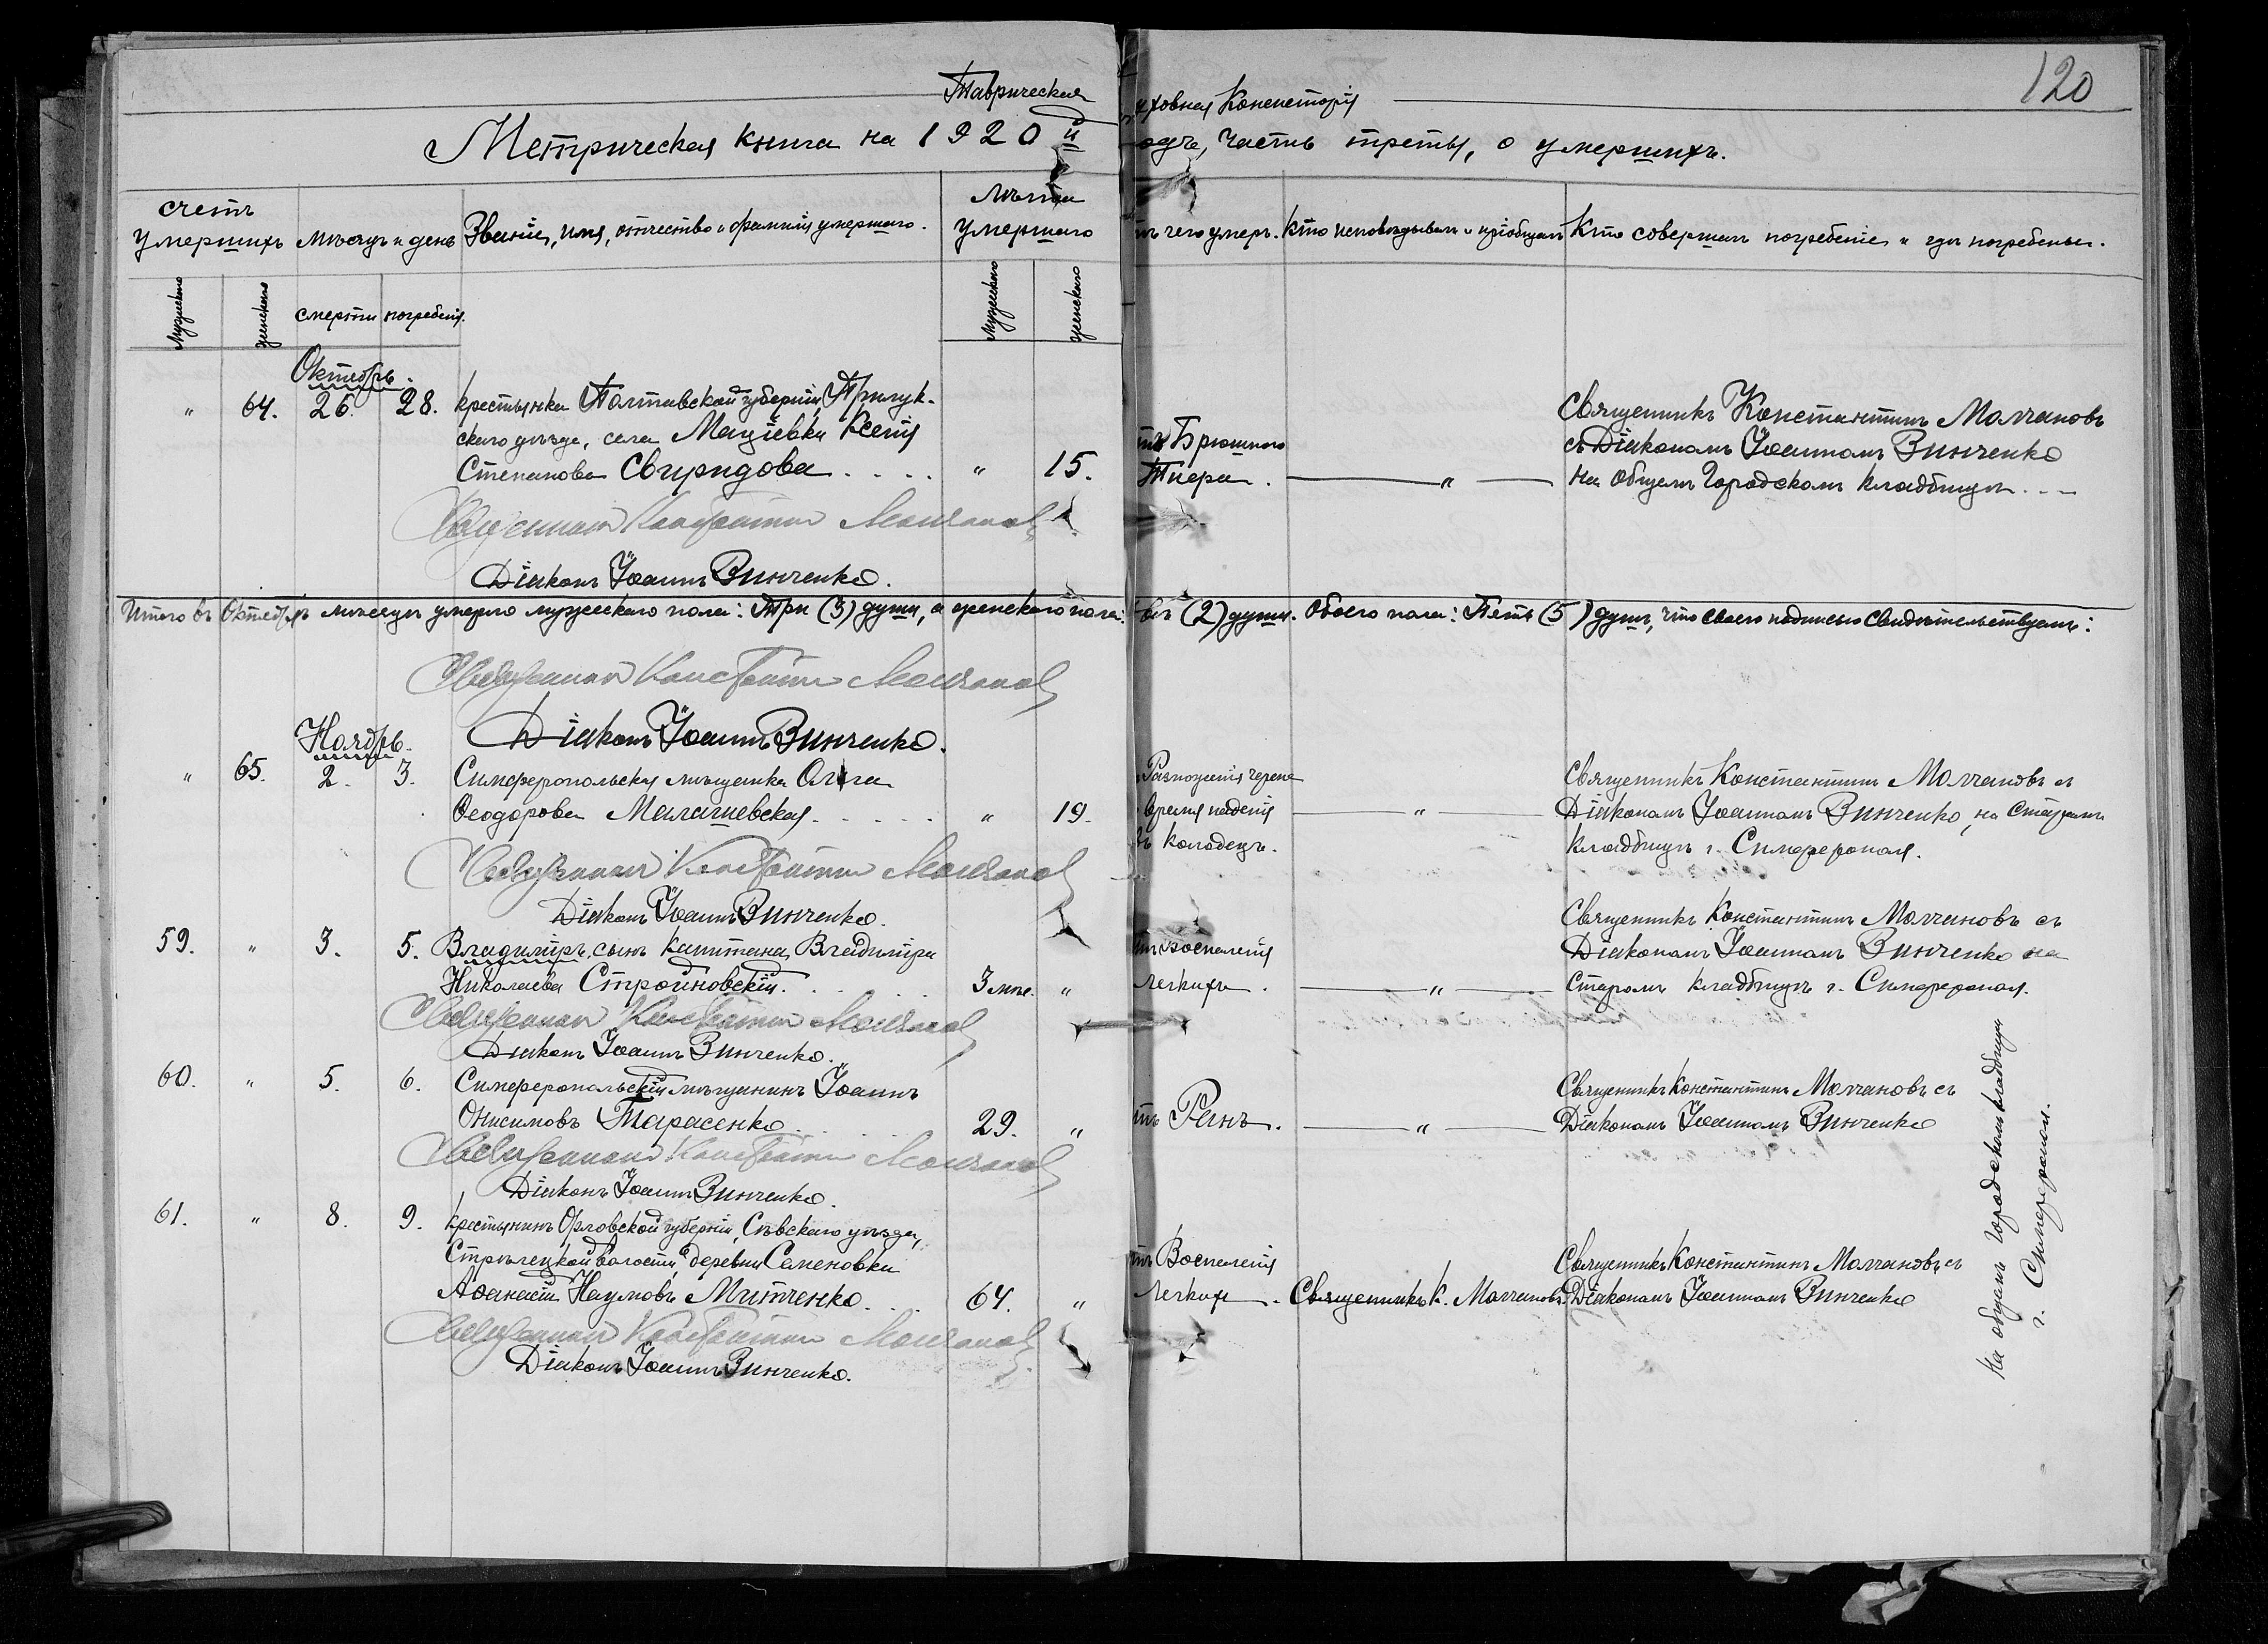 120
Таврическая уховная Консисторія
Метрическая книга на 1920 й одъ, часть третья, о умершихъ.
счетъ умершихъ
Мѣсяцъ и день
Званіе, имя, отчество и фамилія умершаго.
Лѣта умершаго
тъ чего умеръ.
Кто исповѣдывалъ и пріобщалъ
Кто совершалъ погребеніе и гдѣ погребены.
Мужескаго
женскаго
смерти
погребенія.
Мужескаго
женскаго
Октябрь.
" 64. 26. 28. Крестьянка Полтавской губерніи, Прилук-
скаго уѣзда, села Мацѣевки Ксенія
Степанова Свиридова . . . . " 15.
тъ Брюшного
Тифа. — " —
Священникъ Константинъ Молчановъ
съ Діакономъ Іоанномъ Винченко
на Общемъ Городскомъ кладбищѣ. . —
Священникъ Константинъ Молчановъ
Діаконъ Іоаннъ Винченко.
Итого въ Октябрѣ мѣсяцѣ умерло мужескаго пола: Три (3) души, а женскаго пола: вѣ (2) души. Обоего пола: Пять (5) душъ, что своею подписью свидѣтельствуемъ:
Священникъ Константинъ Молчановъ
Діаконъ Іоаннъ Винченко.
Ноябрь.
" 65. 2. 3. Симферопольская мѣщанка Ольга
Ѳеодорова Малашевская. . . . . . " 19.
Размозженія черепа
время паденія — " —
въ колодецъ.
Священникъ Константинъ Молчановъ съ
Діакономъ Іоанномъ Винченко, на Старомъ
кладбищѣ г. Симферополя.
Священникъ Константинъ Молчановъ
Діаконъ Іоаннъ Винченко.
59. " 3. 5. Владиміръ, сынъ капитана Владиміра
Николаева Стройновскій. . . . . 3 мѣс. "
тъ воспаленія
легкихъ. — " —
Священникъ Константинъ Молчановъ съ
Діакономъ Іоанномъ Винченко на
Старомъ кладбищѣ г. Симферополя.
Священникъ Константинъ Молчановъ
Діаконъ Іоаннъ Винченко.
60. " 5. 6. Симферопольскій мѣщанинъ Іоаннъ
Онисимовъ Тарасенко. . . . 29. "
тъ Ранъ. — " —
Священникъ Константинъ Молчановъ съ
Діакономъ Іоанномъ Винченко
Священникъ Константинъ Молчановъ
Діаконъ Іоаннъ Винченко.
61. " 8. 9. Крестьянинъ Орловской губерніи, Сѣвскаго уѣзда,
Стрѣлецкой волости, деревни Семеновки
Аѳанасій Наумовъ Митченко. . . . 64. "
тъ Воспаленія
легкихъ. Священникъ К. Молчановъ.
Священникъ Константинъ Молчановъ съ
Діакономъ Іоанномъ Винченко
Священникъ Константинъ Молчановъ
Діаконъ Іоаннъ Винченко.
На общемъ Городскомъ кладбищѣ
г. Симферополя.